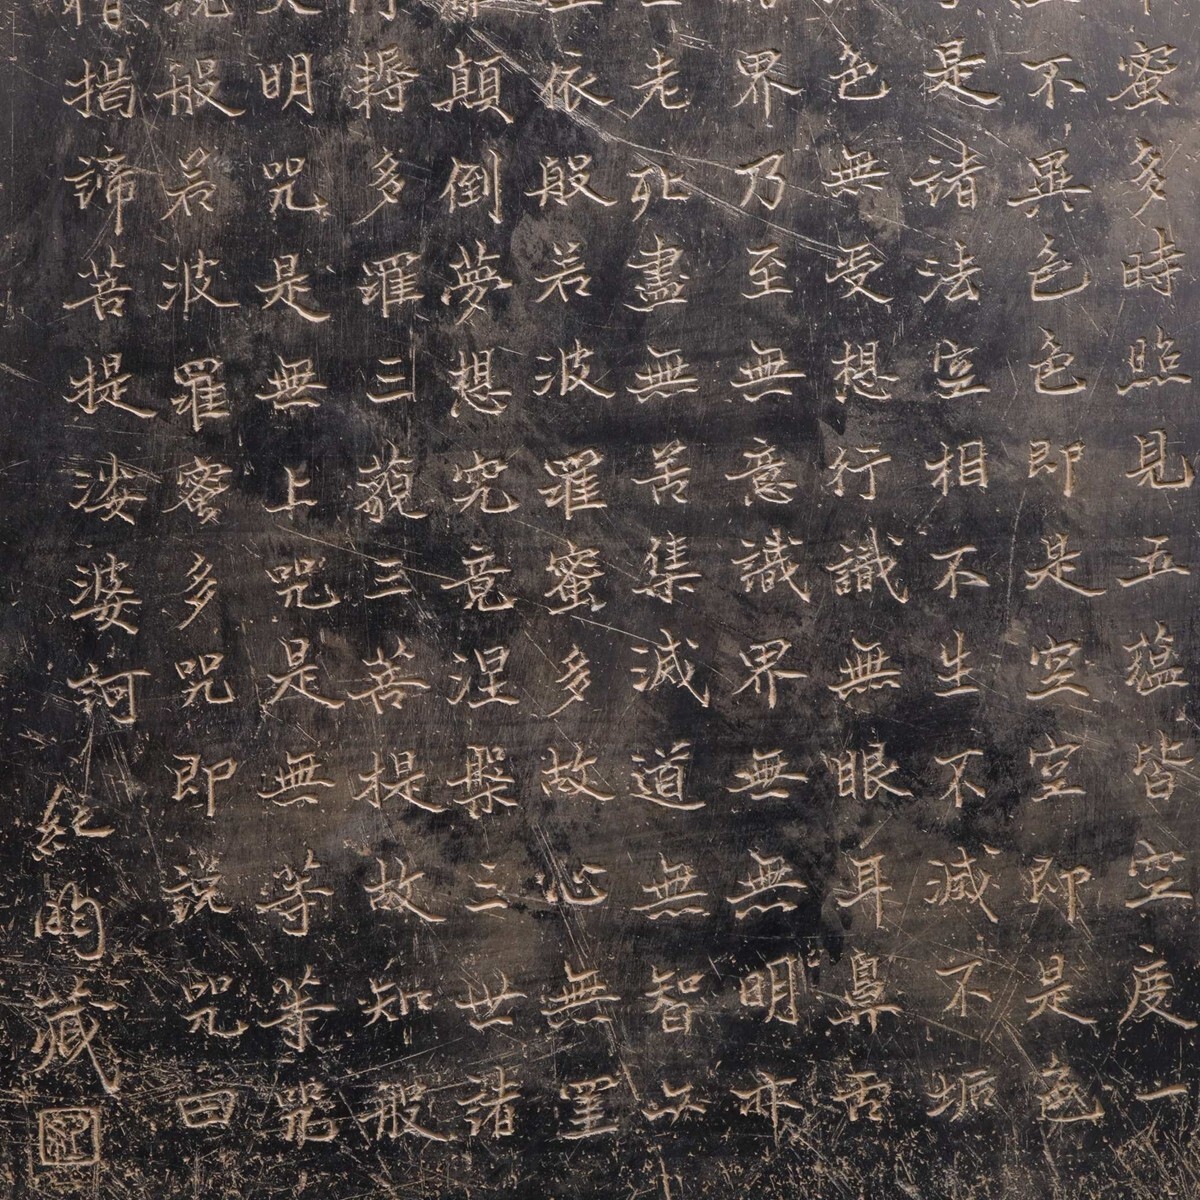 蜜多時照見五蘊皆空度一
不異色色即是空空即是色
是諸法空相不生不滅不垢
色無受想行識無眼耳鼻舌
界乃至無意識界無無明亦
老死盡無苦集滅道無智亦
依般若波羅蜜多故心無罣
顛倒夢想究竟涅槃三世諸
耨多羅三藐三菩提故知般
明咒是無上咒是無等等咒
般若波羅蜜多咒即說咒曰
揭諦菩提娑婆訶
紀昀藏